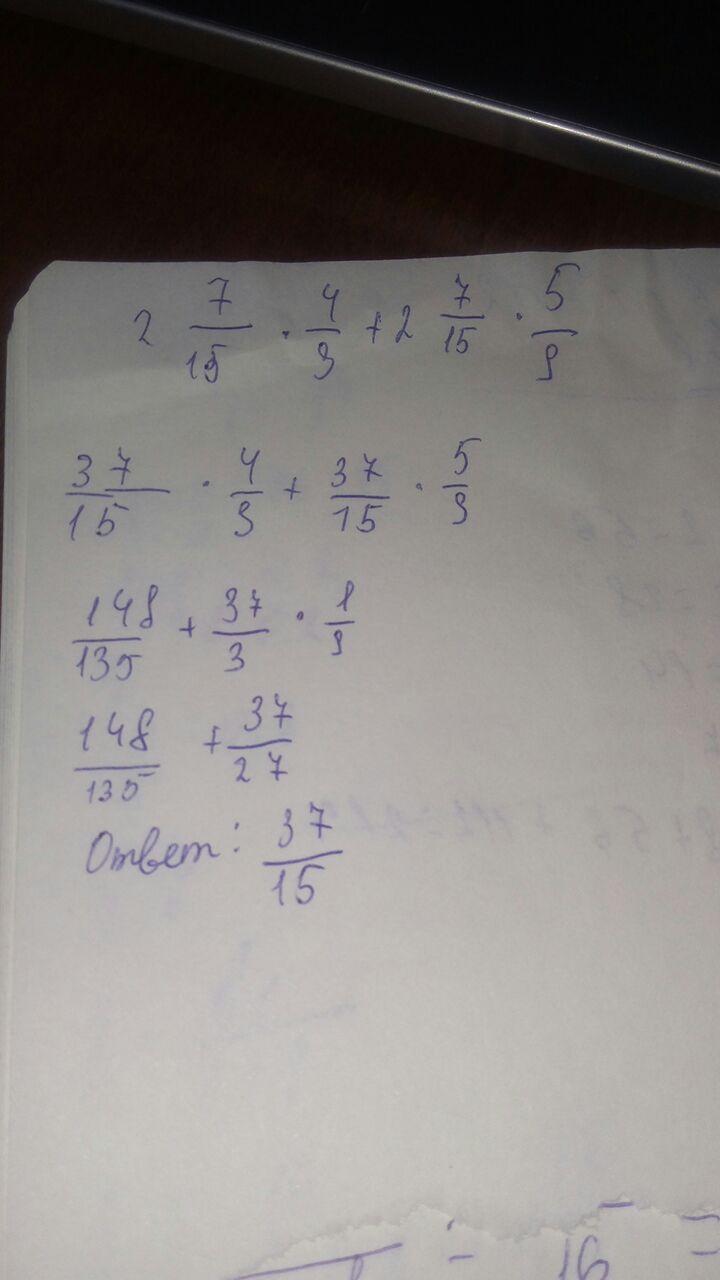 2 7/15 · 4/9 + 2 7/15 · 5/9
37/15 · 4/9 + 37/15 · 5/9
148/135 + 37/3 · 1/9
148/135 + 37/27
Ответ: 37/15
16